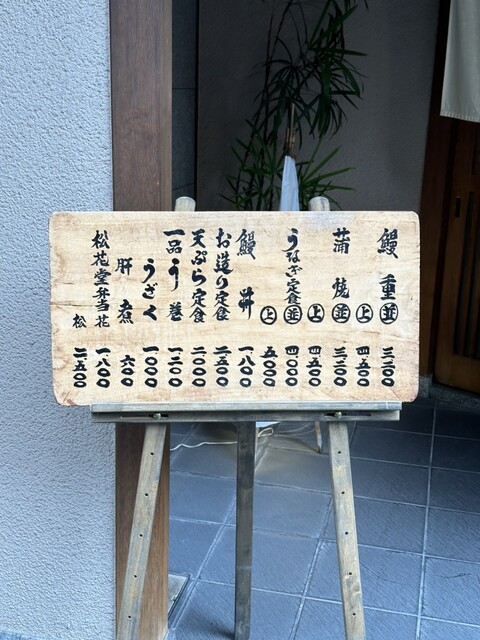 鰻重 並 三三〇〇
上 四五〇〇
蒲焼 並 三三〇〇
上 四五〇〇
うなぎ定食 並 四〇〇〇
上 五〇〇〇
鰻丼 一八〇〇
お造り定食 二五〇〇
天ぷら定食 二〇〇〇
一品 う巻 一二〇〇
うざく 一〇〇〇
肝煮 六〇〇
松花堂弁当 花 一八〇〇
松 二五〇〇